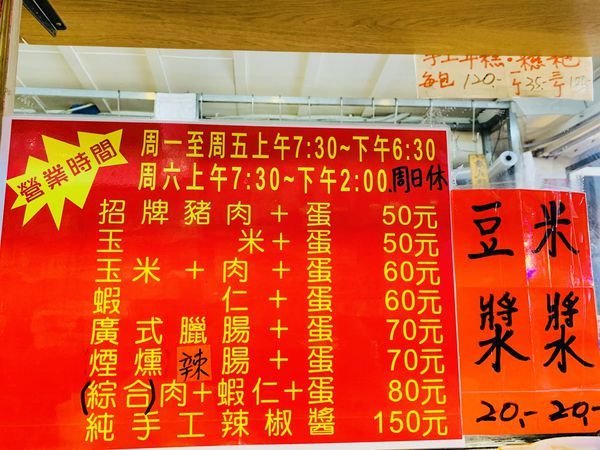 手工年糕·糍粑
每包120.- 一片35.- 三片1
營業時間
周一至周五上午7:30~下午6:30
周六上午7:30~下午2:00 周日休
招牌豬肉+蛋 50元
玉米+蛋 50元
玉米+肉+蛋 60元
蝦仁+蛋 60元
廣式臘腸+蛋 70元
煙燻辣腸+蛋 70元
(綜合)肉+蝦仁+蛋 80元
純手工辣椒醬 150元
豆漿 20.-
米漿 20.-